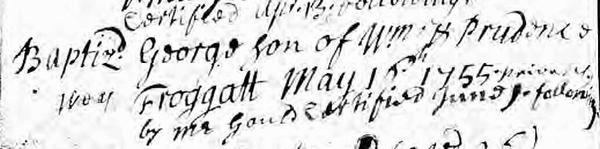 Certified Apr: 13. following
Baptiz'd George son of Wm: & Prudence
Froggatt May 16th 1755 privately
by Mr Gould Certified June 1. following